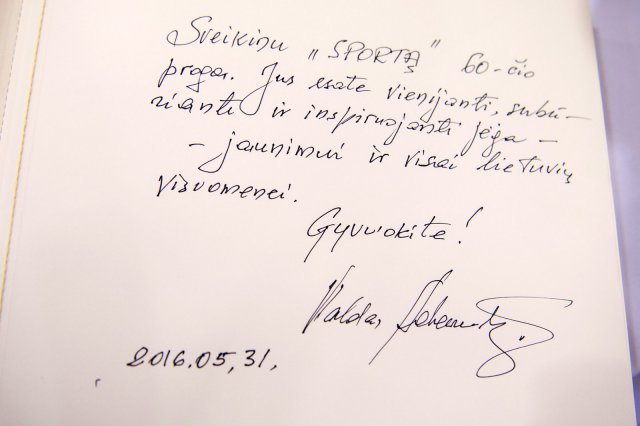 Sveikinu „SPORTĄ" 60-čio
proga. Jūs esate vienijanti, subū-
rianti ir inspiruojanti jėga -
- jaunimui ir visai lietuvių
visuomenei.
Gyvuokite!
Valdas
2016.05,31,